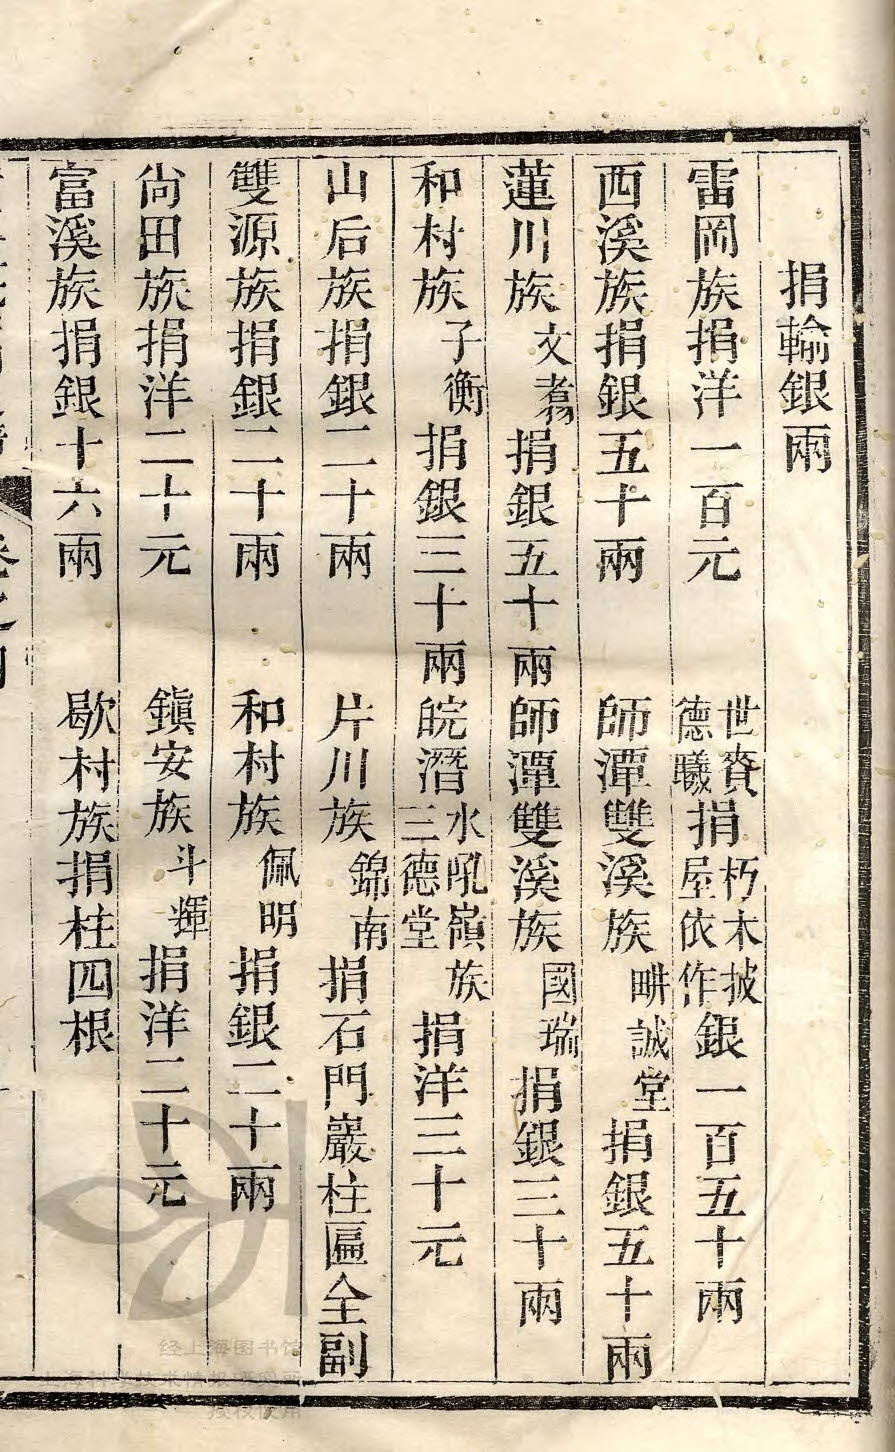 捐輸銀兩
雷岡族捐洋一百元 世賚德曦捐朽木披屋依作銀一百五十兩
西溪族捐銀五十兩 師潭雙溪族畊誠堂捐銀五十兩
蓮川族文翥捐銀五十兩 師潭雙溪族國瑞捐銀三十兩
和村族子衡捐銀三十兩 皖潛水吼嶺族三德堂捐洋三十元
山后族捐銀二十兩 片川族錦南捐石門巖柱匾全副
雙源族捐銀二十兩 和村族佩明捐銀二十兩
尙田族捐洋二十元 鎭安族斗輝捐洋二十元
富溪族捐銀十六兩 歇村族捐柱四根
卷之四
经上海图书馆
授权使用